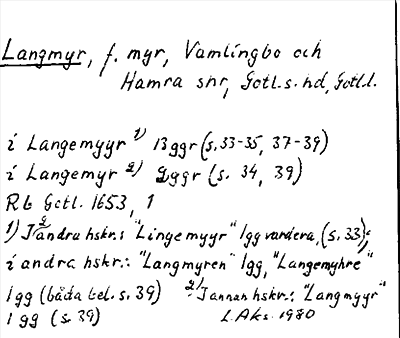 Langmyr, f. myr, Vamlingbo och
Hamra snr, Gotl.s. hd, Gotl.l.
i Langemyyr 1) 13ggr (s. 33-35, 37-39)
i Langemyr 2) 2ggr (s. 34, 39)
RL Gotl. 1653, 1
1) I 2 andra hskr.: "Lingemyyr" 1gg vardera, (s. 33);
i andra hskr.: "Langmyren" 1gg, "Langemyhre"
1gg (båda bel. s. 39) 2) I annan hskr.: "Langmyyr"
1 gg (s. 39) L. Aks. 1980